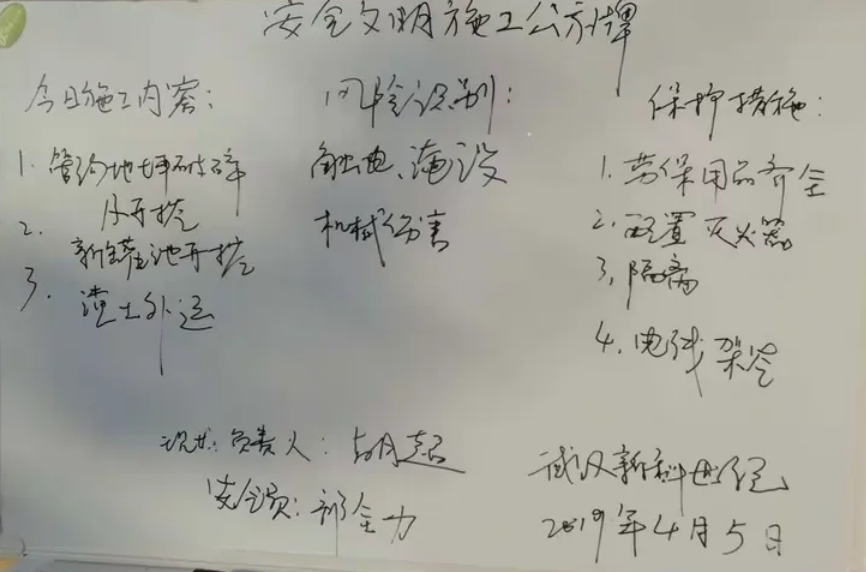 安全文明施工公示牌
今日施工内容：
1. 管沟地坪破碎
及开挖
2. 新罐池开挖
3. 渣土外运
风险识别：
触电、淹没
机械伤害
保护措施：
1. 劳保用品齐全
2. 配置灭火器
3. 隔离
4. 电线架空
现场负责人：胡超
安全员：祁全力
武汉新科世纪
2019年4月5日